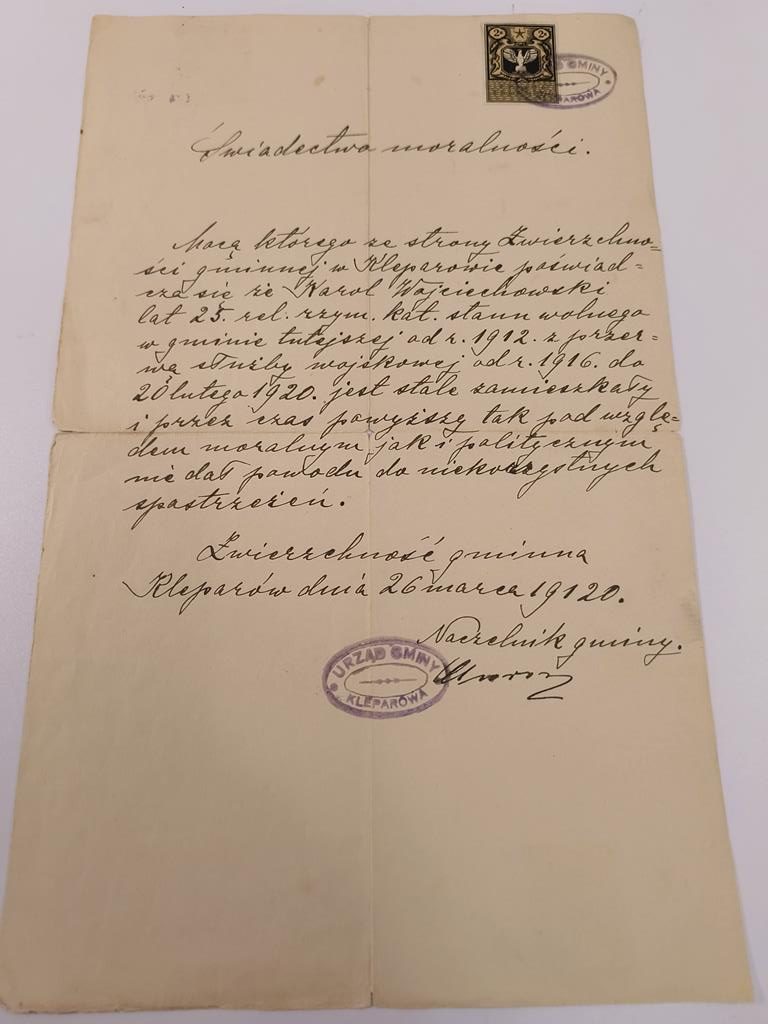 2 2
URZĄD GMINY
KLEPARÓWA
Świadectwo moralności.
Mocą którego ze strony Zwierzchno-
ści gminnej w Kleparowie poświad-
cza się że Karol Wojciechowski
lat 25. rel. rzym. kat. stanu wolnego
w gminie tutejszej od r. 1912. z przer-
wą służby wojskowej od r. 1916. do
20 lutego 1920. jest stale zamieszkały
i przez czas powyższy tak pod wzglę-
dem moralnym jak i politycznym
nie dał powodu do niekorzystnych
spostrzeżeń.
Zwierzchność gminna
Kleparów dnia 26 marca 19120.
Naczelnik gminy.
URZĄD GMINY
KLEPARÓWA